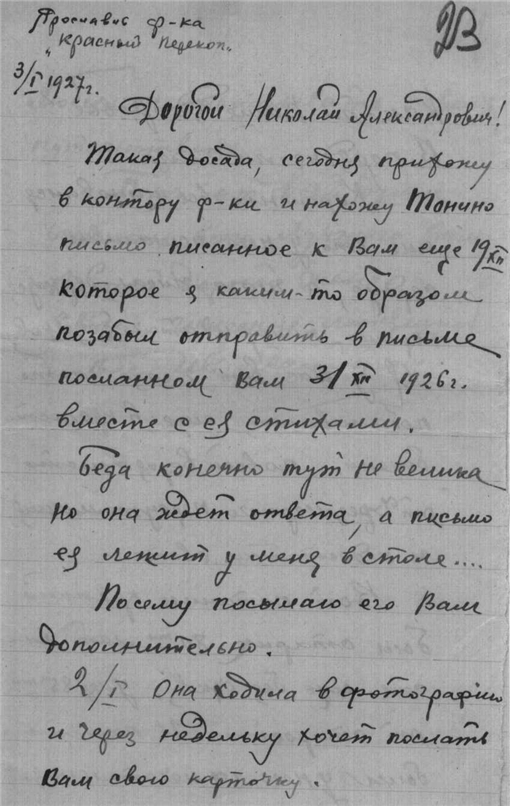 Ярославль ф-ка
"Красный Перекоп"
3/I 1927г.
Дорогой Николай Александрович!
Такая досада, сегодня прихожу
в контору ф-ки и нахожу Тонино
письмо писанное к Вам еще 19 XII
которое я каким-то образом
позабыл отправить в письме
посланном Вам 31 XII 1926г.
вместе с ея стихами.
Беда конечно тут не велика
но она ждет ответа, а письмо
ея лежит у меня в столе....
Посему посылаю его Вам
дополнительно.
2/I Она ходила в фотографию
и через недельку хочет послать
Вам свою карточку.